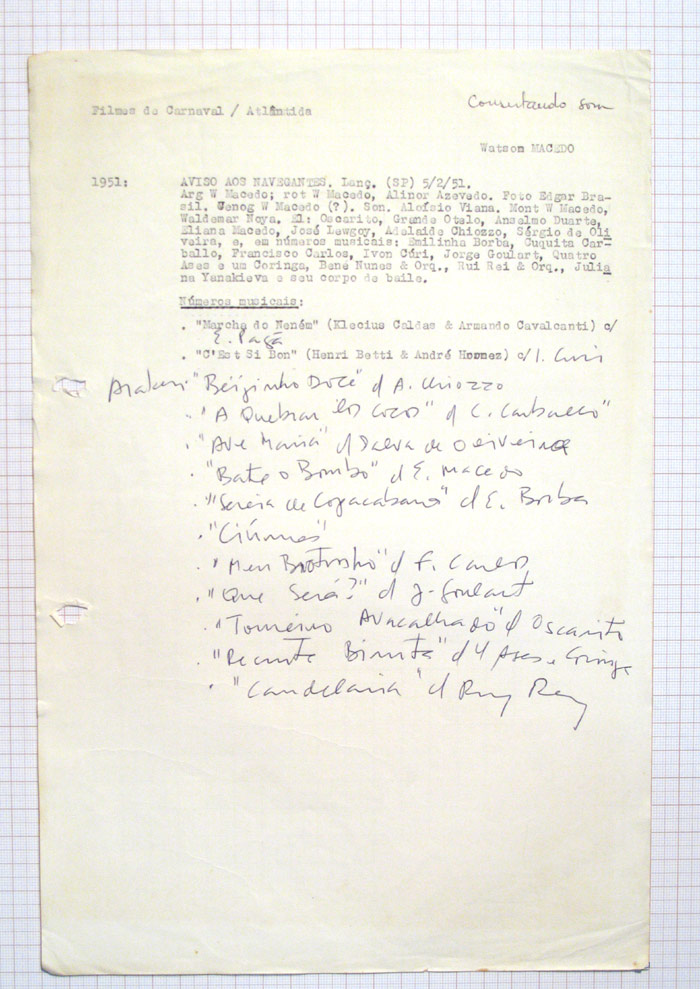 Consertando som
Filmes de Carnaval / Atlântida
Watson MACEDO
1951: AVISO AOS NAVEGANTES. Lanç. (SP) 5/2/51.
Arg W Macedo; rot W Macedo, Alinor Azevedo. Foto Edgar Bra-
sil. Cenog W Macedo (?). Son. Aloísio Viana. Mont W Macedo,
Waldemar Noya. El: Oscarito, Grande Otelo, Anselmo Duarte,
Eliana Macedo, José Lewgoy, Adelaide Chiozzo, Sérgio de Oli
veira, e, em números musicais: Emilinha Borba, Cuquita Car-
ballo, Francisco Carlos, Ivon Cúri, Jorge Goulart, Quatro
Ases e um Coringa, Bené Nunes & Orq., Rui Rei & Orq., Julia
na Yanakieva e seu corpo de baile.
Números musicais:
. "Marcha do Neném" (Klecius Caldas & Armando Cavalcanti) c/
E. Pagã
. "C'Est Si Bon" (Henri Betti & André Hornez) c/ I. Curi
"Beijinho Doce" c/ A. Chiozzo
. "A Quebrar los Cocos" c/ C. Carballo"
. "Ave Maria" c/ Dalva de Oliveira
. "Bate o Bombo" c/ E. Macedo
. "Sereia de Copacabana" c/ E. Borba
. "Ciúmes"
. "Meu Brotinho" c/ F. Carlos
. "Que Será?" c/ J. Goulart
. "Toureiro Avacalhado" c/ Oscarito
. "Recruta Biruta" c/ 4 Ases e Coringa
. "Candelaria" c/ Ruy Rey